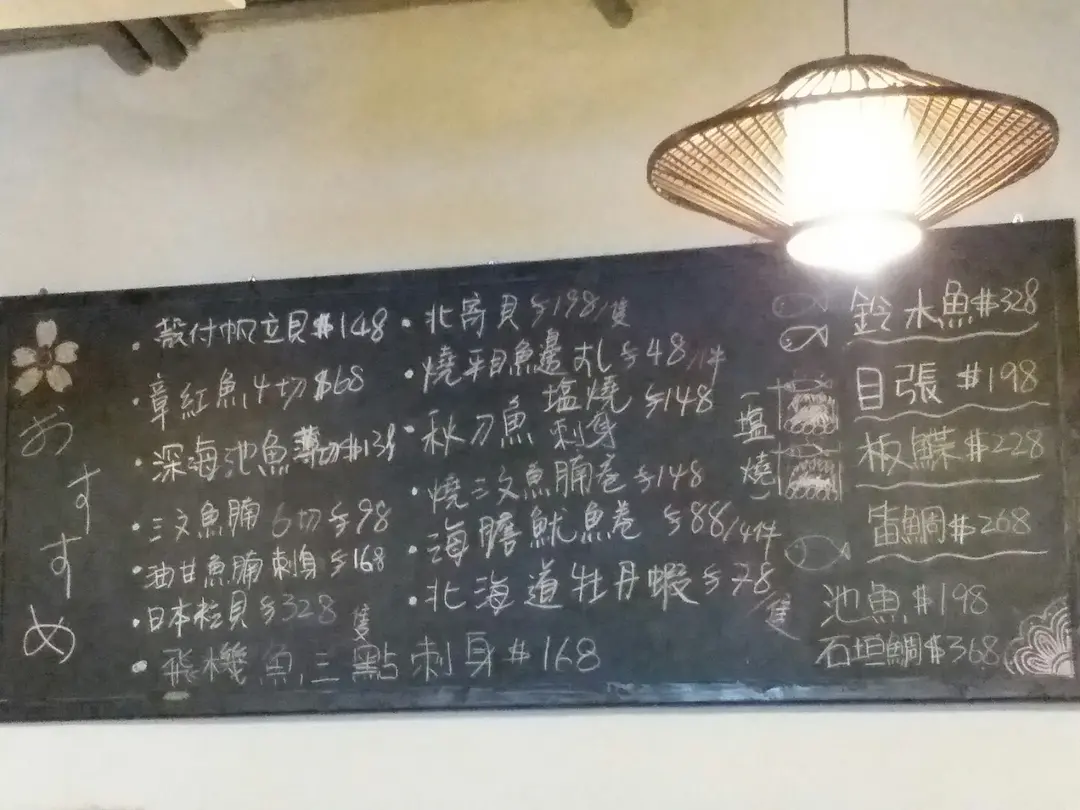 おすすめ
・殼付帆立貝$148
・章紅魚4切$68
・深海池魚薄切$138
・三文魚腩6切$98
・油甘魚腩刺身$168
・日本粒貝$328隻
・飛機魚三點刺身$168
・北寄貝$198/隻
・燒平目魚邊$48/件
・秋刀魚塩燒刺身$148
・燒三文魚腩卷$148
・海膽魷魚卷$88/4件
・北海道牡丹蝦$78/隻
(塩燒)
鈴木魚$328
目張$198
板鰈$228
笛鯛$268
池魚$198
石垣鯛$368